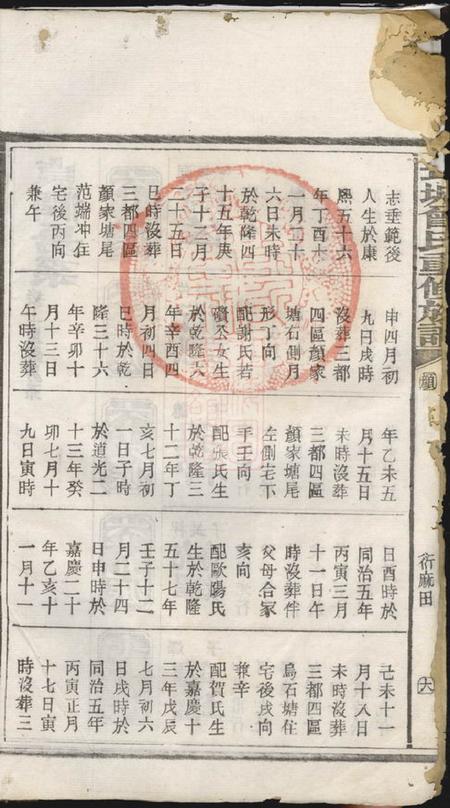 曾氏重修族記
衍麻田
志垂範後
人生於康
熙五十六
年丁酉十
一月二十
六日未時
於乾隆四
十五年庚
子十二月
二十五日
巳時沒葬
三都四區
顏家塘尾
范端冲住
宅後丙向
兼午
申四月初
九日戌時
沒葬三都
四區顏家
塘石側月
形丁向
配謝氏若
公女生
於乾隆六
年辛酉四
月初四日
巳時於乾
隆三十六
年辛卯十
月十三日
午時沒葬
年乙未五
月十五日
未時沒葬
三都四區
顏家塘尾
左側宅下
手壬向
配張氏生
於乾隆三
十二年丁
亥七月初
一日子時
於道光二
十三年癸
卯七月十
九日寅時
日酉時於
同治五年
丙寅三月
十一日午
時沒葬伴
父母合冢
亥向
配歐陽氏
生於乾隆
五十七年
壬子十二
月二十四
日申時於
嘉慶二十
年乙亥十
一月十一
己未十一
月十八日
未時沒葬
三都四區
烏石塘住
宅後戌向
兼辛
配賀氏生
於嘉慶十
三年戊辰
七月初六
日戌時於
同治五年
丙寅正月
十七日寅
時沒葬三